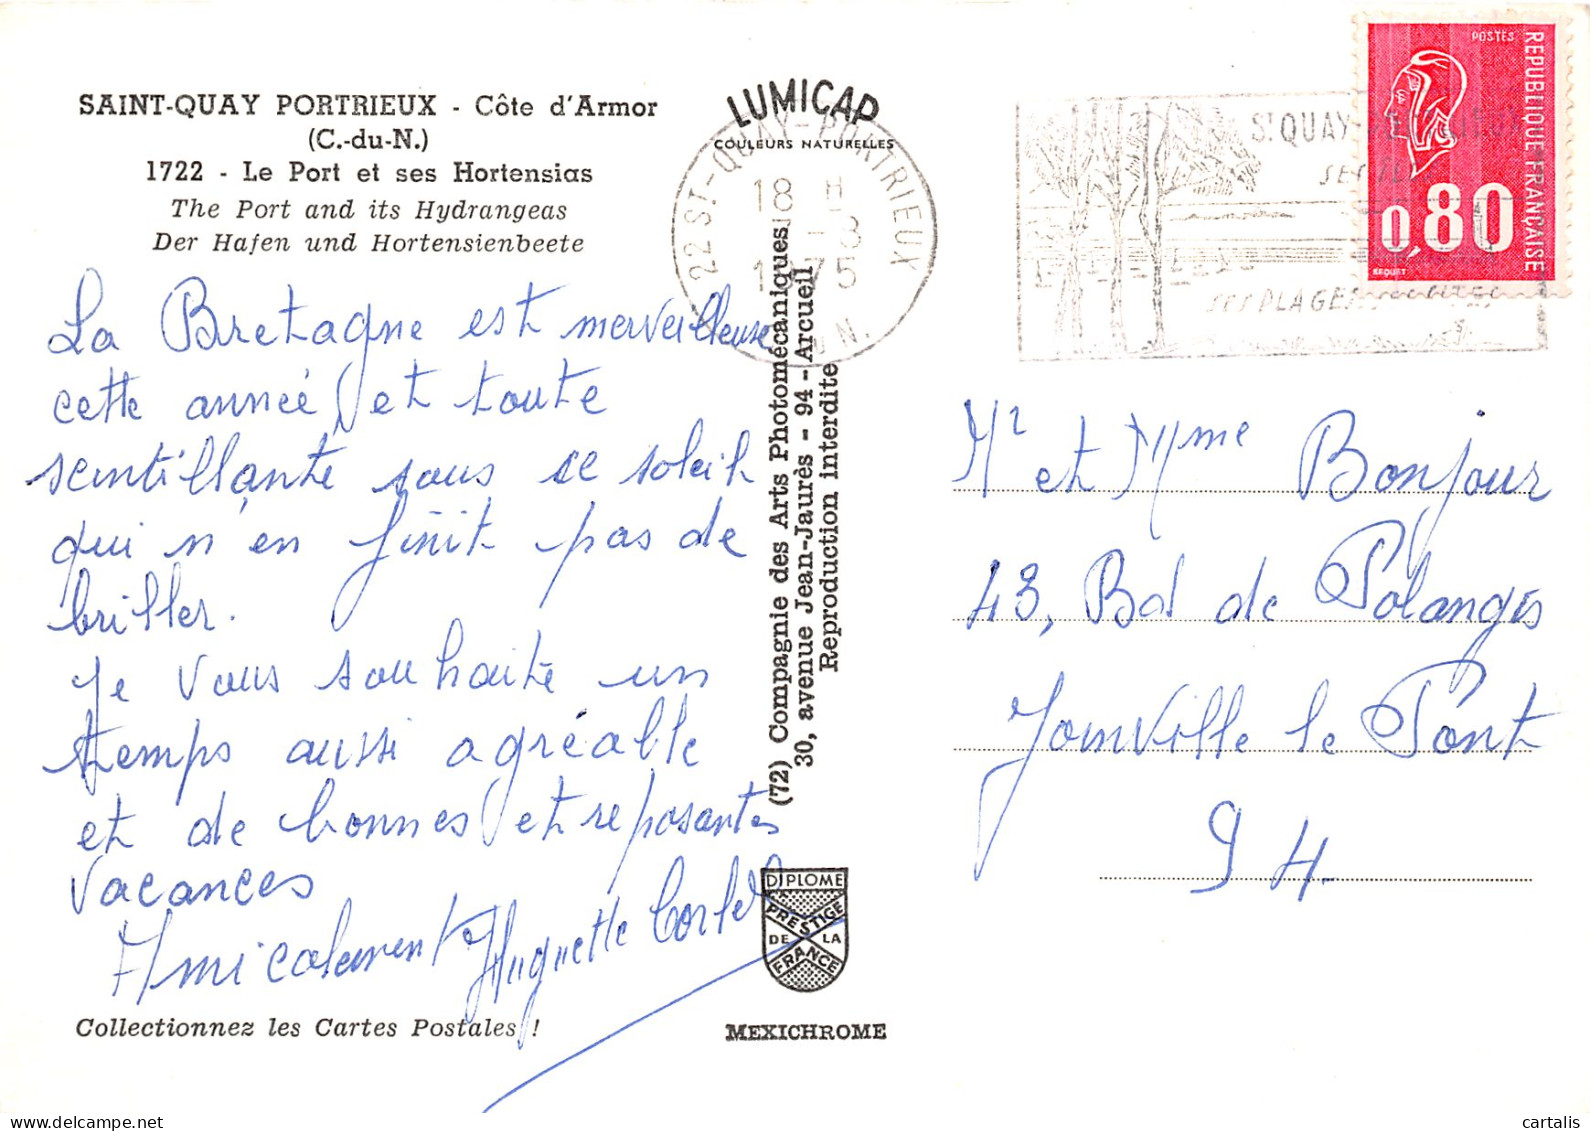 SAINT-QUAY PORTRIEUX - Côte d'Armor
(C.-du-N.)
1722 - Le Port et ses Hortensias
The Port and its Hydrangeas
Der Hafen und Hortensienbeete
La Bretagne est merveilleuse
cette année et toute
scintillante sous ce soleil
qui n'en finit pas de
briller.
Je vous souhaite un
temps aussi agréable
et de bonnes et reposantes
vacances
Amicalement Huguette
Collectionnez les Cartes Postales !
LUMICAP
COULEURS NATURELLES
22 ST-QUAY-PORTRIEUX
18 H
-8
1975
(72) Compagnie des Arts Photomécaniques
30, avenue Jean-Jaurès - 94 - Arcueil
Reproduction interdite
DIPLOME
PRESTIGE
DE LA
FRANCE
MEXICHROME
ST QUAY
SES PLAGES
POSTES
REPUBLIQUE FRANÇAISE
0,80
BEQUET
Mr et Mme Bonjour
43, Bd de Polangis
Joinville le Pont
94
delcampe.net
cartalis